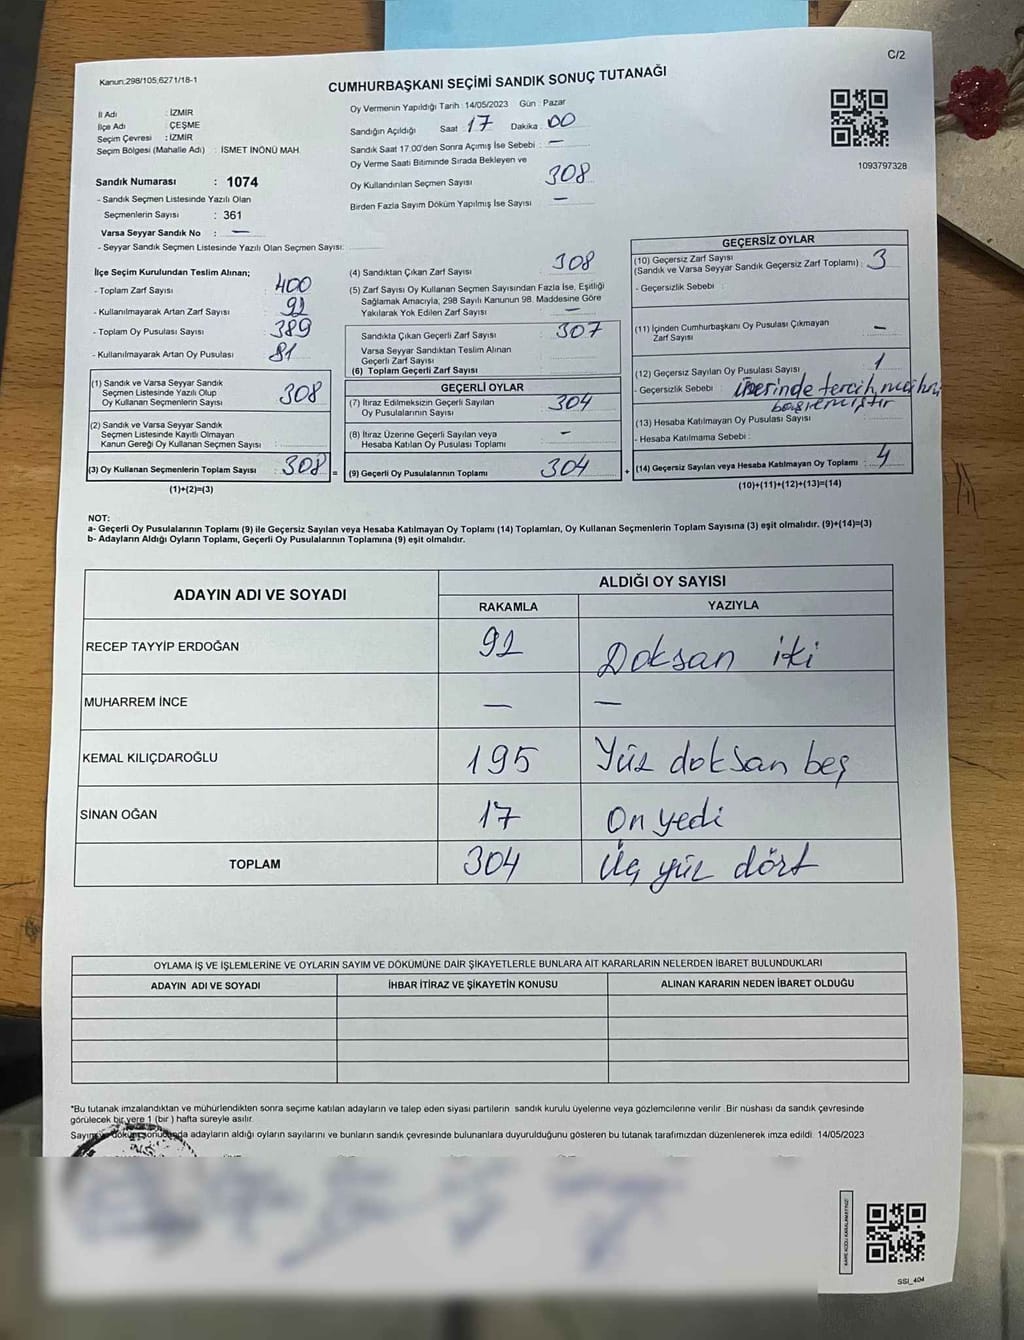 C/2
Kanun:298/105,6271/18-1
CUMHURBAŞKANI SEÇİMİ SANDIK SONUÇ TUTANAĞI
İl Adı : İZMİR
İlçe Adı : ÇEŞME
Seçim Çevresi : İZMİR
Seçim Bölgesi (Mahalle Adı) : İSMET İNÖNÜ MAH.
Sandık Numarası : 1074
- Sandık Seçmen Listesinde Yazılı Olan
Seçmenlerin Sayısı : 361
Varsa Seyyar Sandık No : —
- Seyyar Sandık Seçmen Listesinde Yazılı Olan Seçmen Sayısı:
Oy Vermenin Yapıldığı Tarih : 14/05/2023 Gün : Pazar
Sandığın Açıldığı Saat : 17 Dakika : 00
Sandık Saat 17.00'den Sonra Açımış İse Sebebi : —
Oy Verme Saati Bitiminde Sırada Bekleyen ve
Oy Kullandırılan Seçmen Sayısı 308
Birden Fazla Sayım Döküm Yapılmış İse Sayısı —
1093797328
İlçe Seçim Kurulundan Teslim Alınan;
- Toplam Zarf Sayısı : 400
- Kullanılmayarak Artan Zarf Sayısı : 92
- Toplam Oy Pusulası Sayısı : 389
- Kullanılmayarak Artan Oy Pusulası : 81
(1) Sandık ve Varsa Seyyar Sandık
Seçmen Listesinde Yazılı Olup
Oy Kullanan Seçmenlerin Sayısı 308
(2) Sandık ve Varsa Seyyar Sandık
Seçmen Listesinde Kayıtlı Olmayan
Kanun Gereği Oy Kullanan Seçmen Sayısı
(3) Oy Kullanan Seçmenlerin Toplam Sayısı : 308 =
(1)+(2)=(3)
(4) Sandıktan Çıkan Zarf Sayısı 308
(5) Zarf Sayısı Oy Kullanan Seçmen Sayısından Fazla İse, Eşitliği
Sağlamak Amacıyla, 298 Sayılı Kanunun 98. Maddesine Göre
Yakılarak Yok Edilen Zarf Sayısı : —
Sandıkta Çıkan Geçerli Zarf Sayısı : 307
Varsa Seyyar Sandıktan Teslim Alınan
Geçerli Zarf Sayısı
(6) Toplam Geçerli Zarf Sayısı
GEÇERLİ OYLAR
(7) İtiraz Edilmeksizin Geçerli Sayılan
Oy Pusulalarının Sayısı 304
(8) İtiraz Üzerine Geçerli Sayılan veya
Hesaba Katılan Oy Pusulası Toplamı —
(9) Geçerli Oy Pusulalarının Toplamı 304 +
GEÇERSİZ OYLAR
(10) Geçersiz Zarf Sayısı
(Sandık ve Varsa Seyyar Sandık Geçersiz Zarf Toplamı) : 3
- Geçersizlik Sebebi :
(11) İçinden Cumhurbaşkanı Oy Pusulası Çıkmayan
Zarf Sayısı —
(12) Geçersiz Sayılan Oy Pusulası Sayısı 1
- Geçersizlik Sebebi : üzerinde tercih mührü
basılmamıştır
(13) Hesaba Katılmayan Oy Pusulası Sayısı
- Hesaba Katılmama Sebebi :
(14) Geçersiz Sayılan veya Hesaba Katılmayan Oy Toplamı : 4
(10)+(11)+(12)+(13)=(14)
NOT:
a- Geçerli Oy Pusulalarının Toplamı (9) ile Geçersiz Sayılan veya Hesaba Katılmayan Oy Toplamı (14) Toplamları, Oy Kullanan Seçmenlerin Toplam Sayısına (3) eşit olmalıdır. (9)+(14)=(3)
b- Adayların Aldığı Oyların Toplamı, Geçerli Oy Pusulalarının Toplamına (9) eşit olmalıdır.
ADAYIN ADI VE SOYADI
ALDIĞI OY SAYISI
RAKAMLA YAZIYLA
RECEP TAYYİP ERDOĞAN 92 Doksan iki
MUHARREM İNCE — —
KEMAL KILIÇDAROĞLU 195 Yüz doksan beş
SİNAN OĞAN 17 On yedi
TOPLAM 304 Üç yüz dört
OYLAMA İŞ VE İŞLEMLERİNE VE OYLARIN SAYIM VE DÖKÜMÜNE DAİR ŞİKAYETLERLE BUNLARA AİT KARARLARIN NELERDEN İBARET BULUNDUKLARI
ADAYIN ADI VE SOYADI İHBAR İTİRAZ VE ŞİKAYETİN KONUSU ALINAN KARARIN NEDEN İBARET OLDUĞU
*Bu tutanak imzalandıktan ve mühürlendikten sonra seçime katılan adayların ve talep eden siyasi partilerin sandık kurulu üyelerine veya gözlemcilerine verilir. Bir nüshası da sandık çevresinde
görülecek bir yere 1 (bir) hafta süreyle asılır.
Sayım ve döküm sonucunda adayların aldığı oyların sayılarını ve bunların sandık çevresinde bulunanlara duyurulduğunu gösteren bu tutanak tarafımızdan düzenlenerek imza edildi. 14/05/2023
KARE KODU KARALAMAYINIZ!
SSI_404